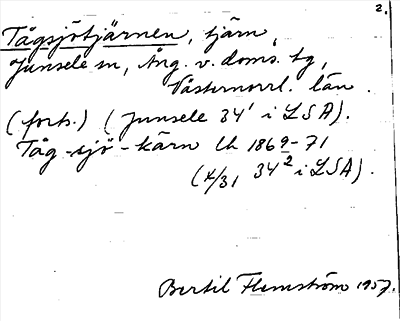 2.
Tågsjötjärnen, tjärn,
Junsele sn, Ång. v. doms. tg,
Västernorrl. län.
(forts.) (Junsele 34¹ i LSA).
Tåg-sjö-kärn Uh 1869-71
(4/31 34² i LSA).
Bertil Flemström 1957.